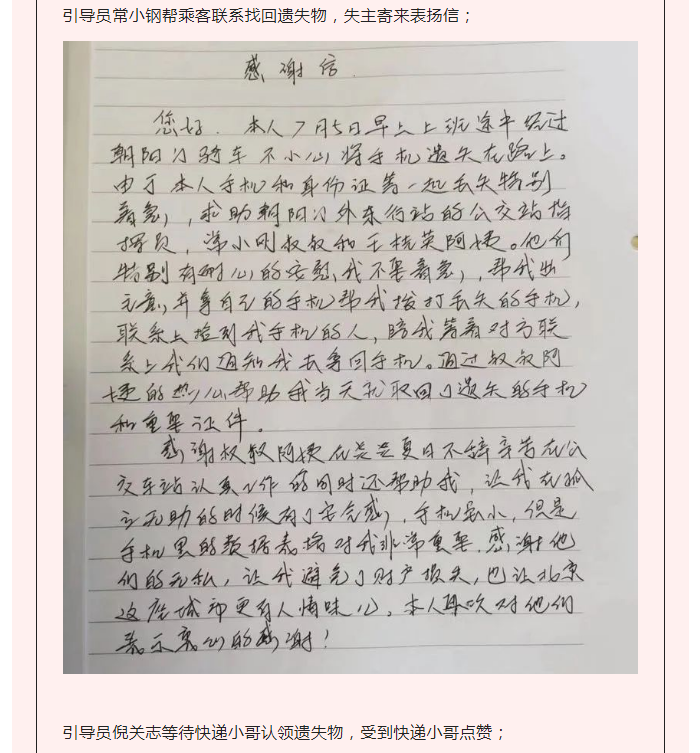 引导员常小钢帮乘客联系找回遗失物，失主寄来表扬信；
感谢信
您好，本人7月5日早上上班途中经过
朝阳门骑车不小心将手机遗失在路上。
由于本人手机和身份证等一起丢失特别
着急，求助朝阳门外东行站的公交站指
挥员，常小刚叔叔和王桂英阿姨。他们
特别有耐心的安慰我不要着急，帮我出
主意，并拿自己的手机帮我拨打丢失的手机，
联系上捡到我手机的人，陪我等着对方联
系上我们通知我去拿回手机。通过叔叔阿
姨的热心帮助我当天就取回了遗失的手机
和重要证件。
感谢叔叔阿姨在炎炎夏日不辞辛苦在公
交车站认真工作的同时还帮助我，让我在孤
立无助的时候有了安全感，手机虽小，但是
手机里的数据表格对我非常重要，感谢他
们的无私，让我避免了财产损失，也让北京
这座城市更有人情味儿。本人再次对他们
表示衷心的感谢！
引导员倪关志等待快递小哥认领遗失物，受到快递小哥点赞；